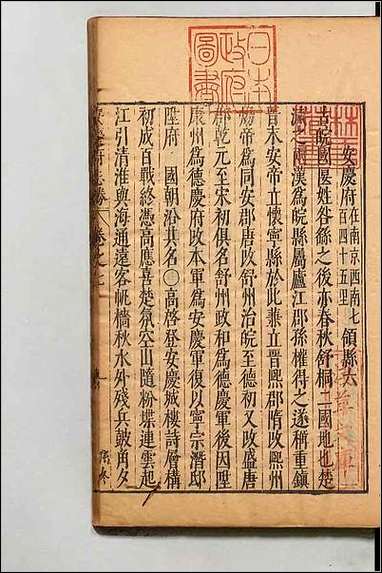 日本政府圖書
安慶府 在南京西南七百四十五里 領縣六
古皖國偃姓咎繇之後亦春秋舒桐二國地也楚
滅之兩漢爲皖縣屬廬江郡孫權得之遂稱重鎮
晉末安帝立懷寧縣於此兼立晉熙郡隋政熙州
煬帝爲同安郡唐改舒州治皖至德初又改盛唐
郡乾元至宋初俱名舒州政和爲德慶軍後因陞
康州爲德慶府改本軍爲安慶軍復以寧宗潛邸
陞府 國朝沿其名○高啓登安慶城樓詩層構
初成百戰終憑高應喜楚氛空山隨粉堞連雲起
江引清淮與海通遠客帆檣秋水外殘兵鼓角夕
淺草文庫